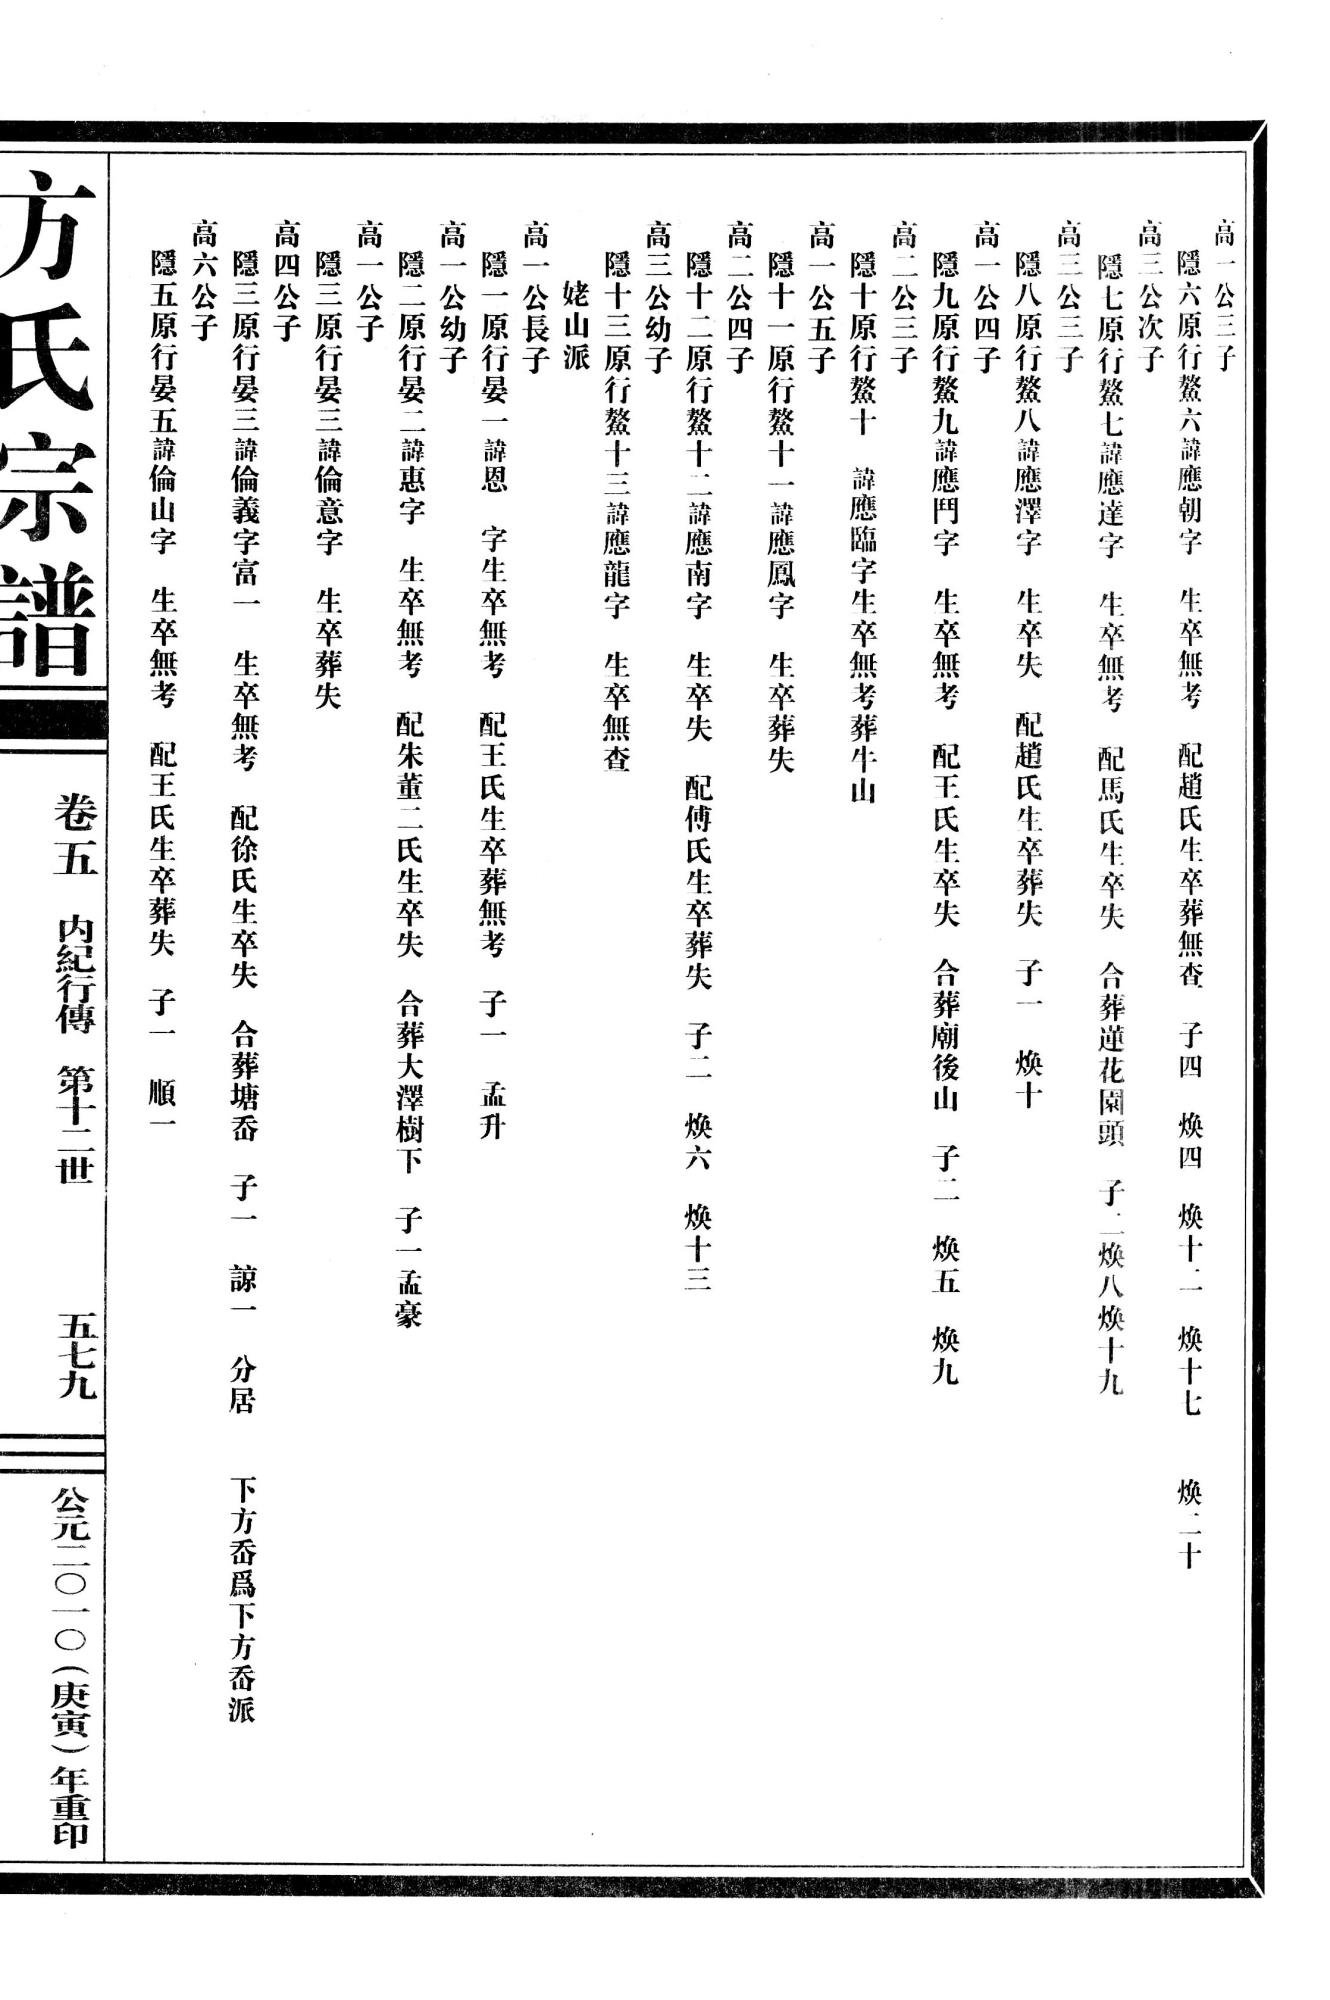 高一公三子
隱六原行鰲六諱應朝字　生卒無考　配趙氏生卒葬無查　子四　煥四　煥十二　煥十七　煥二十
高三公次子
隱七原行鰲七諱應達字　生卒無考　配馬氏生卒失　合葬蓮花園頭　子二煥八煥十九
高三公三子
隱八原行鰲八諱應澤字　生卒失　配趙氏生卒葬失　子一　煥十
高一公四子
隱九原行鰲九諱應鬥字　生卒無考　配王氏生卒失　合葬廟後山　子二　煥五　煥九
高二公三子
隱十原行鰲十　諱應臨字生卒無考葬牛山
高一公五子
隱十一原行鰲十一諱應鳳字　生卒葬失
高二公四子
隱十二原行鰲十二諱應南字　生卒失　配傅氏生卒葬失　子二　煥六　煥十三
高三公幼子
隱十三原行鰲十三諱應龍字　生卒無查
姥山派
高一公長子
隱一原行晏一諱恩　字生卒無考　配王氏生卒葬無考　子一　孟升
高一公幼子
隱二原行晏二諱惠字　生卒無考　配朱董二氏生卒失　合葬大澤樹下　子一孟豪
高一公子
隱三原行晏三諱倫意字　生卒葬失
高四公子
隱三原行晏三諱倫義字富一　生卒無考　配徐氏生卒失　合葬塘岙　子一　諒一　分居　下方岙爲下方岙派
高六公子
隱五原行晏五諱倫山字　生卒無考　配王氏生卒葬失　子一　順一
方氏宗譜
卷五　內紀行傳　第十二世　五七九
公元二〇一〇（庚寅）年重印